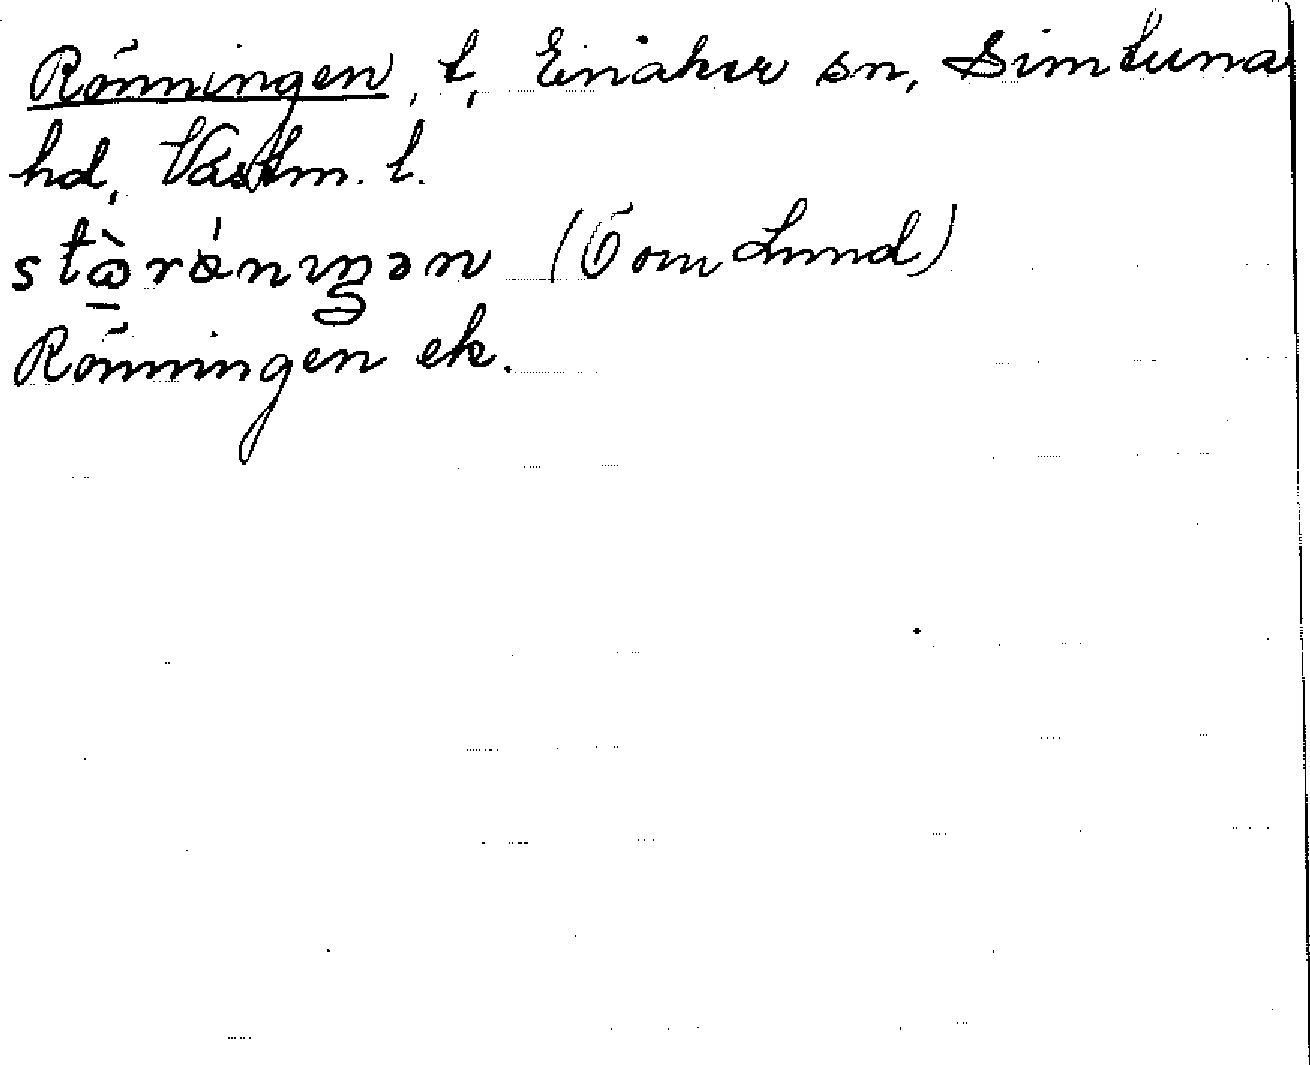 Rönningen, t, Enåker sn, Simtuna
hd, Västm. l.
stǫ̀rǿnıŋən (Ö om Lund)
Rönningen ek.